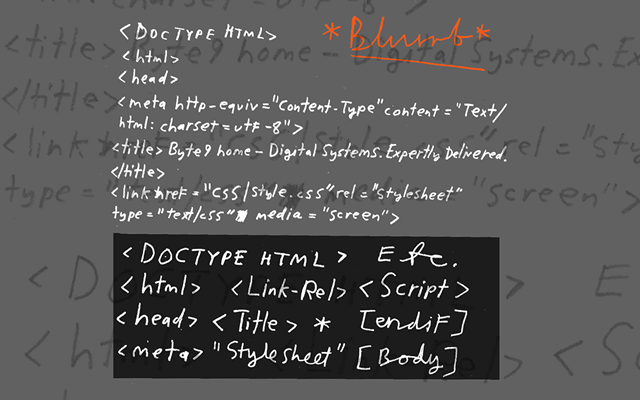 <DOCTYPE HTML>
*Blurb*
<html>
<head>
<meta http-equiv="Content-Type" content="Text/
html: charset=utf-8">
<title> Byte9 home - Digital Systems. Expertly Delivered.
</title>
<link href="CSS/style.css" rel="stylesheet"
type="text/css" media="screen">
<DOCTYPE HTML> Etc.
<html> <Link-Rel> <Script>
<head> <Title> * [endiF]
<meta> "Stylesheet" [Body]